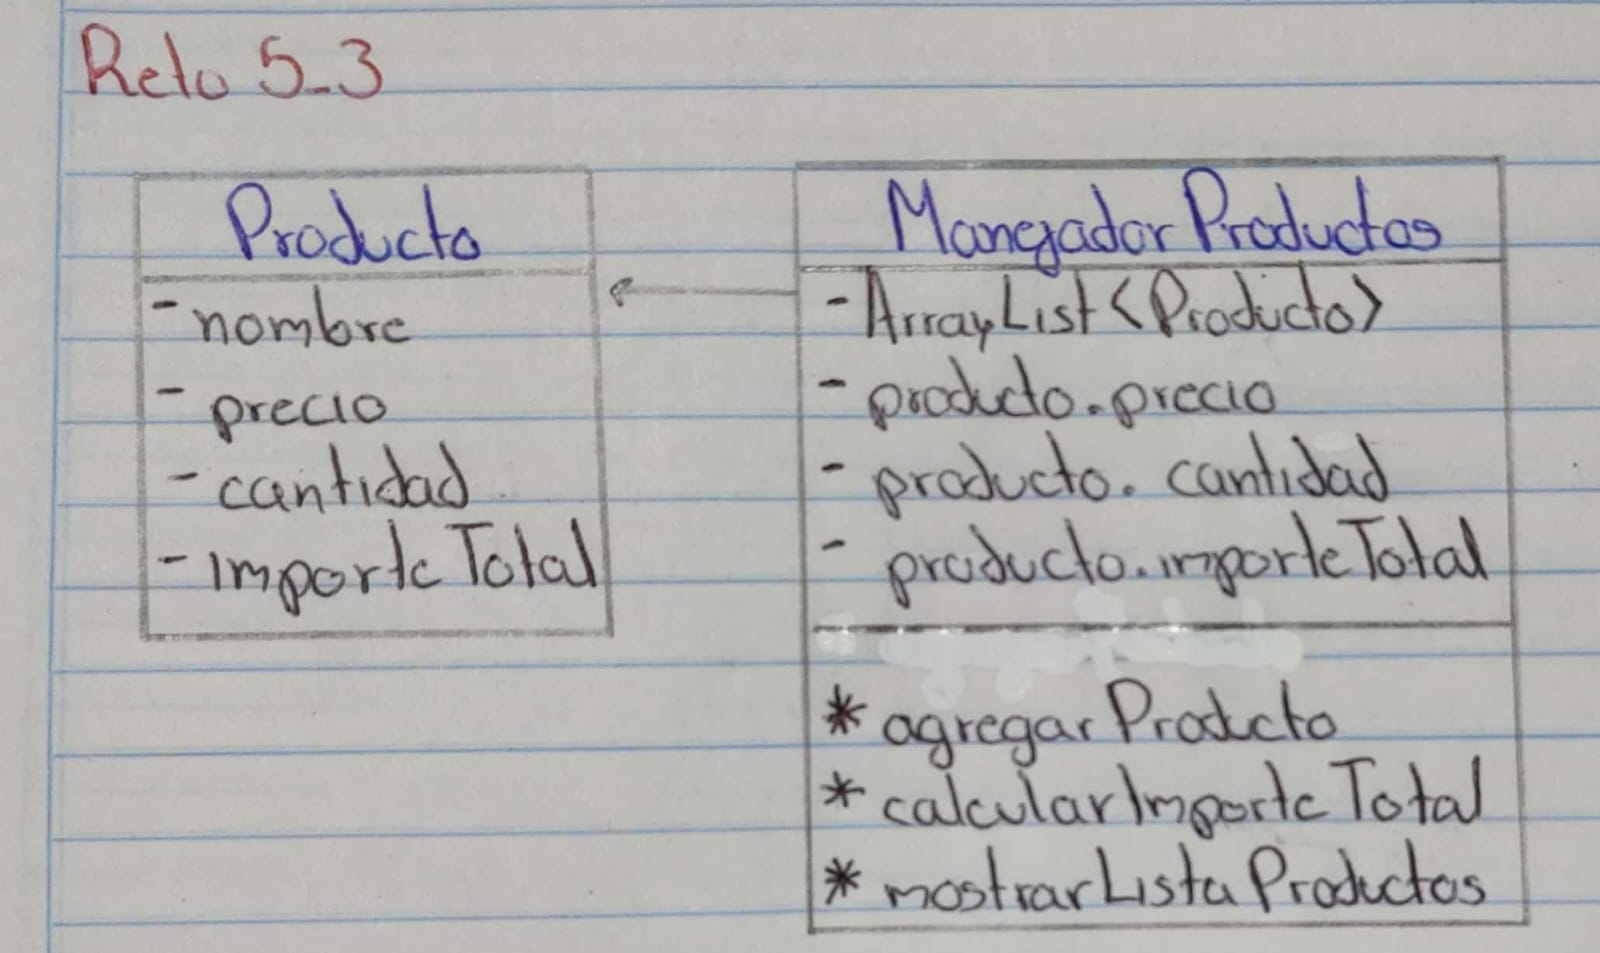 Reto 5-3
Producto
- nombre
- precio
- cantidad
- importeTotal
ManejadorProductos
- ArrayList<Producto>
- producto.precio
- producto.cantidad
- producto.importeTotal
* agregarProducto
* calcularImporteTotal
* mostrarListaProductos